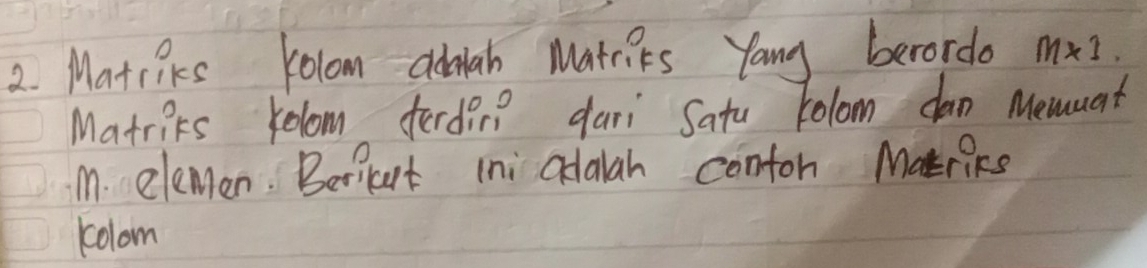 2. Matriks kolom adalah Matriks Yang berordo m×1.
Matriks kolom terdiri dari Satu kolom dan Memuat
m. elemen. Berikut ini adalah contoh Matriks
kolom